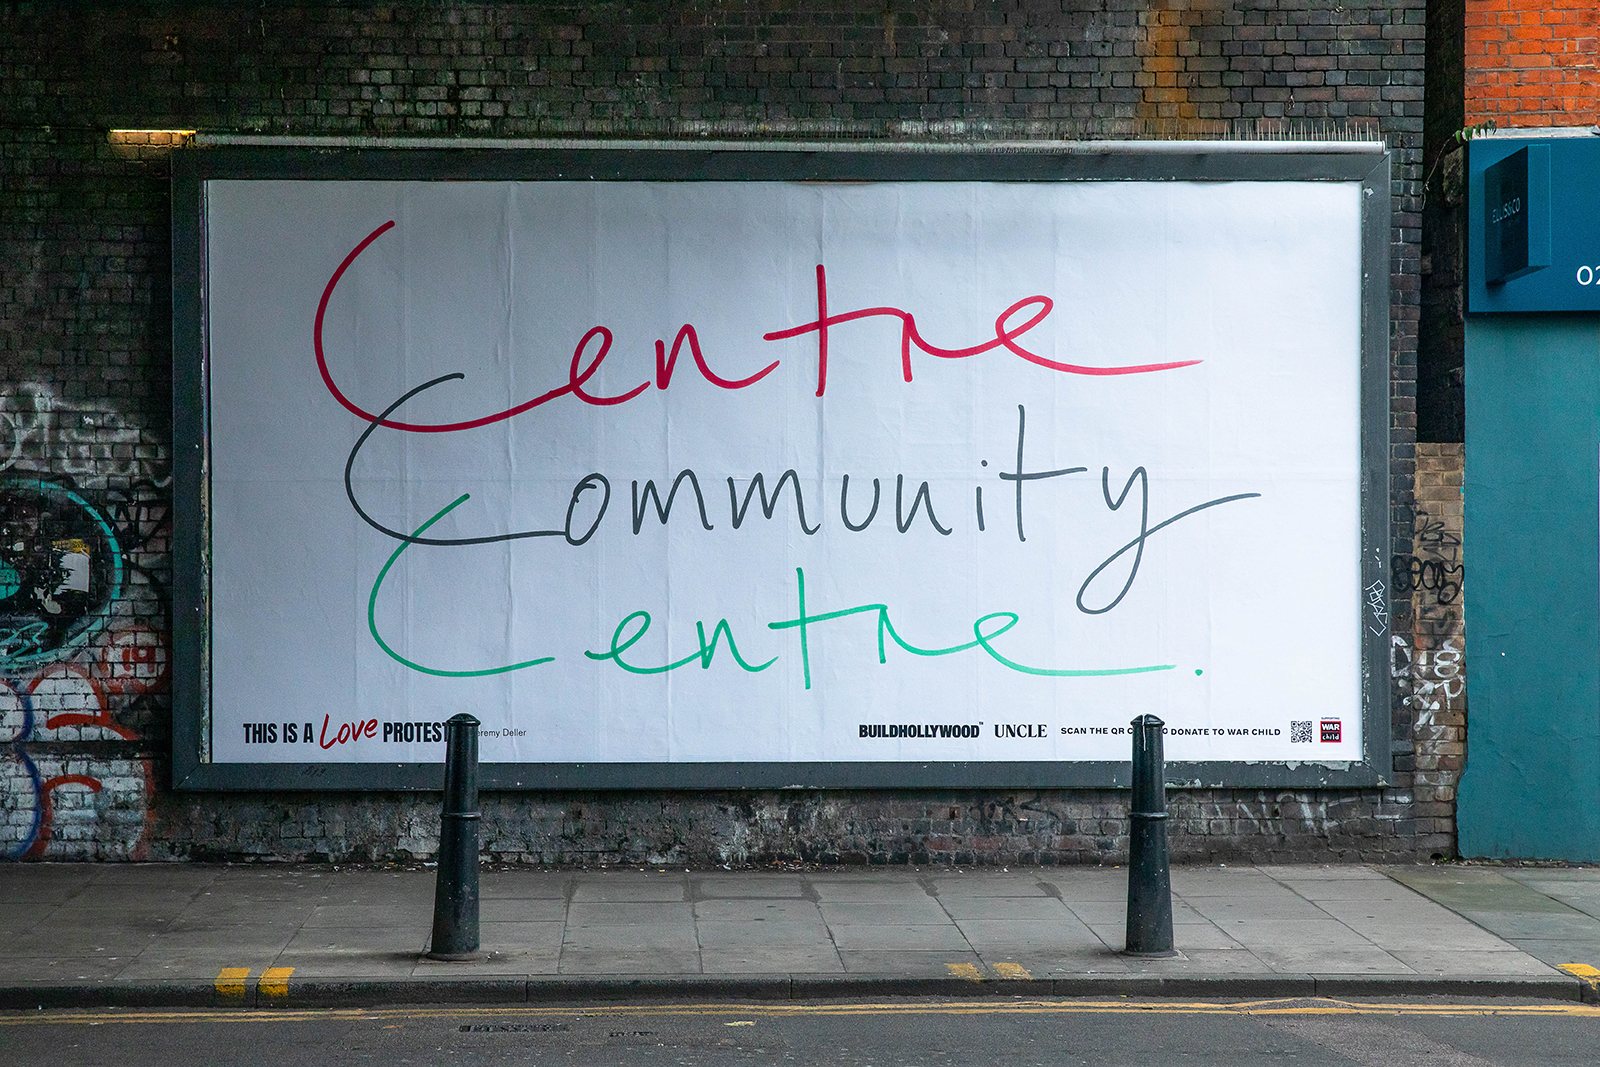 Centre
Community
Centre.
THIS IS A Love PROTEST
Jeremy Deller
BUILDHOLLYWOOD™ UNCLE SCAN THE QR TO DONATE TO WAR CHILD
SUPPORTING
WAR
child
ELLIS&CO
02